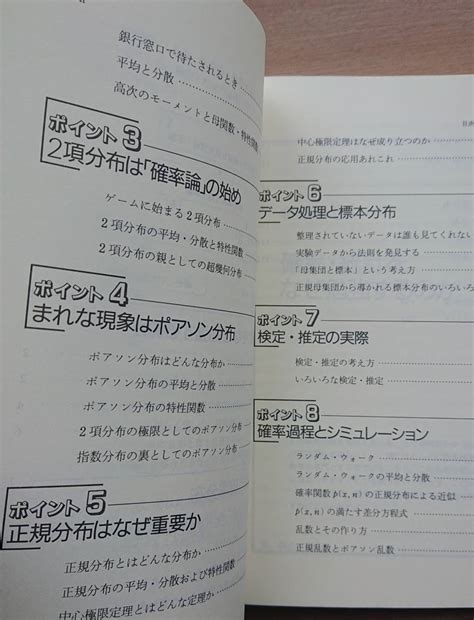 銀行窓口で待たされるとき
平均と分散
高次のモーメントと母関数・特性関数
ポイント3
2項分布は「確率論」の始め
ゲームに始まる2項分布
2項分布の平均・分散と特性関数
2項分布の親としての超幾何分布
ポイント4
まれな現象はポアソン分布
ポアソン分布はどんな分布か
ポアソン分布の平均と分散
ポアソン分布の特性関数
2項分布の極限としてのポアソン分布
指数分布の裏としてのポアソン分布
ポイント5
正規分布はなぜ重要か
正規分布とはどんな分布か
正規分布の平均・分散および特性関数
中心極限定理とはどんな定理か
中心極限定理はなぜ成り立つのか
正規分布の応用あれこれ
ポイント6
データ処理と標本分布
整理されていないデータは誰も見てくれない
実験データから法則を発見する
「母集団と標本」という考え方
正規母集団から導かれる標本分布のいろいろ
ポイント7
検定・推定の実際
検定・推定の考え方
いろいろな検定・推定
ポイント8
確率過程とシミュレーション
ランダム・ウォーク
ランダム・ウォークの平均と分散
確率関数 p(x, n) の正規分布による近似
p(x, n) の満たす差分方程式
乱数とその作り方
正規乱数とポアソン乱数